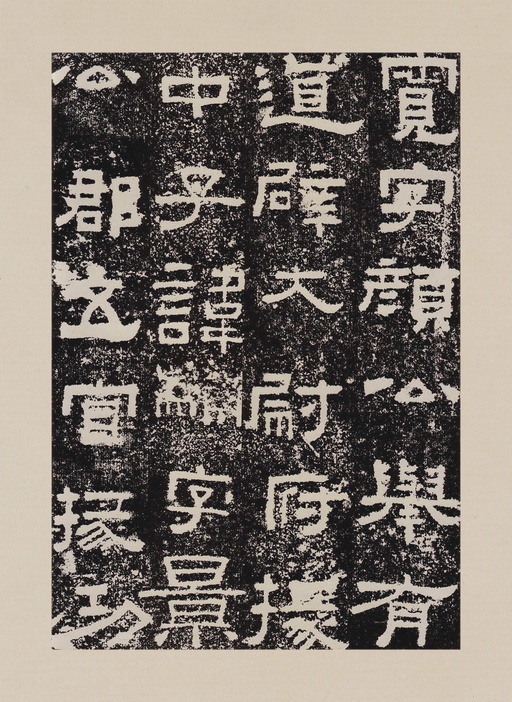 寬字顏公舉有
道辟大尉府掾
中子諱黼字景
公郡五官掾功